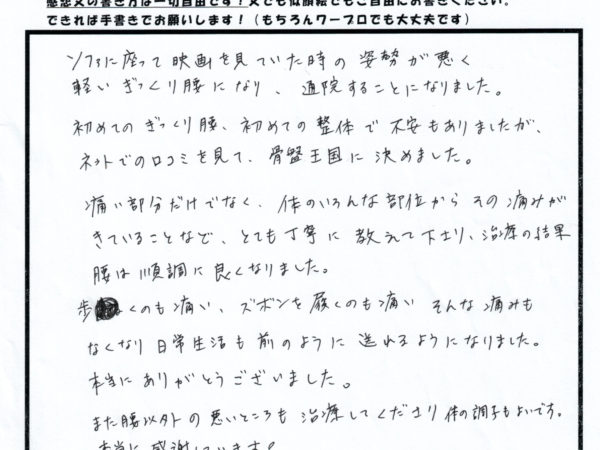 感想文の書き方は一切自由です！文でも似顔絵でもご自由にお書きください。
できれば手書きでお願いします！（もちろんワープロでも大丈夫です）
ソファに座って映画を見ていた時の姿勢が悪く
軽いぎっくり腰になり、通院することになりました。
初めてのぎっくり腰、初めての整体で不安もありましたが、
ネットでの口コミを見て、骨盤王国に決めました。
痛い部分だけでなく、体のいろんな部位からその痛みが
きていることなど、とても丁寧に教えて下さり、治療の結果
腰は順調に良くなりました。
歩くのも痛い、ズボンを履くのも痛いそんな痛みも
なくなり日常生活も前のように送れるようになりました。
本当にありがとうございました。
また腰以外の悪いところも治療してくださり体の調子もよいです。
本当に感謝しています！